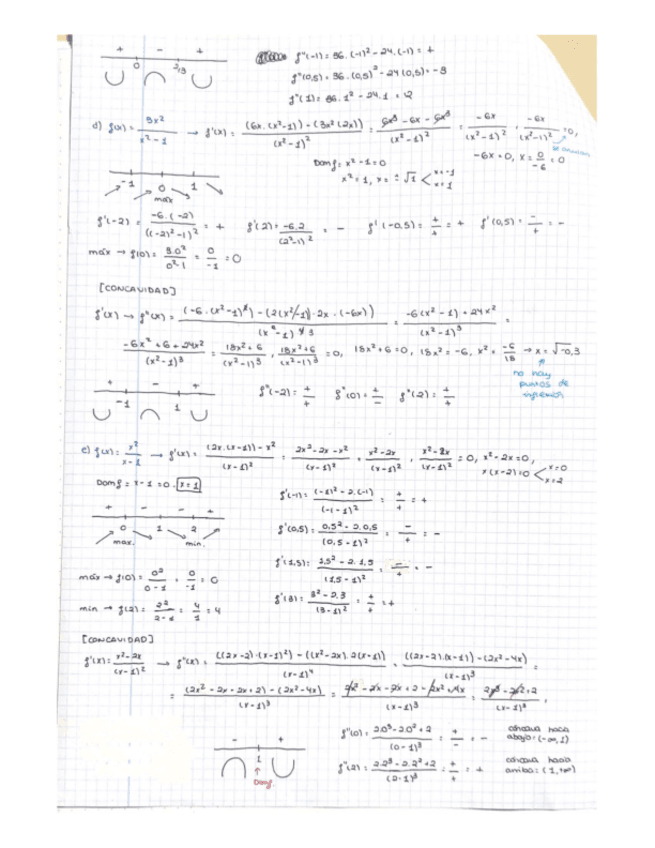 + - +
0 2/3
f''(-1) = 36.(-1)² - 24.(-1) = +
f''(0,5) = 36.(0,5)² - 24(0,5) = -3
f''(1) = 36.1² - 24.1 = 12
d) f(x) = 3x²/x²-1 → f'(x) = (6x.(x²-1)) - (3x²(2x))/(x²-1)² = 6x³ - 6x - 6x³/(x²-1)² = -6x/(x²-1)² , -6x/(x²-1)² = 0,
Dom f = x²-1 = 0
x² = 1, x = ±√1 < x=-1 x=1
-6x = 0, x = 0/-6 = 0
-1 0 1
máx
f'(-2) = -6.(-2)/((-2)²-1)² = + f'(2) = -6.2/(2²-1)² = - f'(-0,5) = +/+ = + f'(0,5) = -/+ = -
máx → f(0) = 3.0²/0²-1 = 0/-1 = 0
[CONCAVIDAD]
f'(x) → f''(x) = (-6.(x²-1)²) - (2(x²-1).2x.(-6x))/(x²-1)⁴ 3 = -6(x²-1) + 24x²/(x²-1)³ =
-6x² + 6 + 24x²/(x²-1)³ = 18x²+6/(x²-1)³ , 18x²+6/(x²-1)³ = 0, 18x²+6 = 0, 18x² = -6, x² = -6/18 → x = √-0,3
no hay
puntos de
inflexión
+ - +
-1 1
f''(-2) = +/+ f''(0) = +/- f''(2) = +/+
e) f(x) = x²/x-1 → f'(x) = (2x.(x-1)) - x²/(x-1)² = 2x²-2x-x²/(x-1)² = x²-2x/(x-1)² , x²-2x/(x-1)² = 0, x²-2x = 0,
x(x-2) = 0 < x=0 x=2
Dom f = x-1 = 0. x=1
f'(-1) = (-1)²-2.(-1)/(-1-1)² = +/+ = +
+ - - +
0 1 2
máx. min.
f'(0,5) = 0,5²-2.0,5/(0,5-1)² = -/+ = -
f'(1,5) = 1,5²-2.1,5/(1,5-1)² = -/+ = -
máx → f(0) = 0²/0-1 = 0/-1 = 0
f'(3) = 3²-2.3/(3-1)² = +/+ = +
min → f(2) = 2²/2-1 = 4/1 = 4
[CONCAVIDAD]
f'(x) = x²-2x/(x-1)² → f''(x) = ((2x-2).(x-1)²) - ((x²-2x).2(x-1))/(x-1)⁴ = ((2x-2).(x-1)) - (2x²-4x)/(x-1)³ =
= (2x²-2x-2x+2) - (2x²-4x)/(x-1)³ = 2x²-2x-2x+2-2x²+4x/(x-1)³ = 2x³-2x²+2/(x-1)³ ,
- +
1
Dom f.
f''(0) = 2.0³-2.0²+2/(0-1)³ = +/- = - cóncava hacia
abajo: (-∞,1)
f''(2) = 2.2³-2.2²+2/(2-1)³ = +/+ = + cóncava hacia
arriba: (1,+∞)